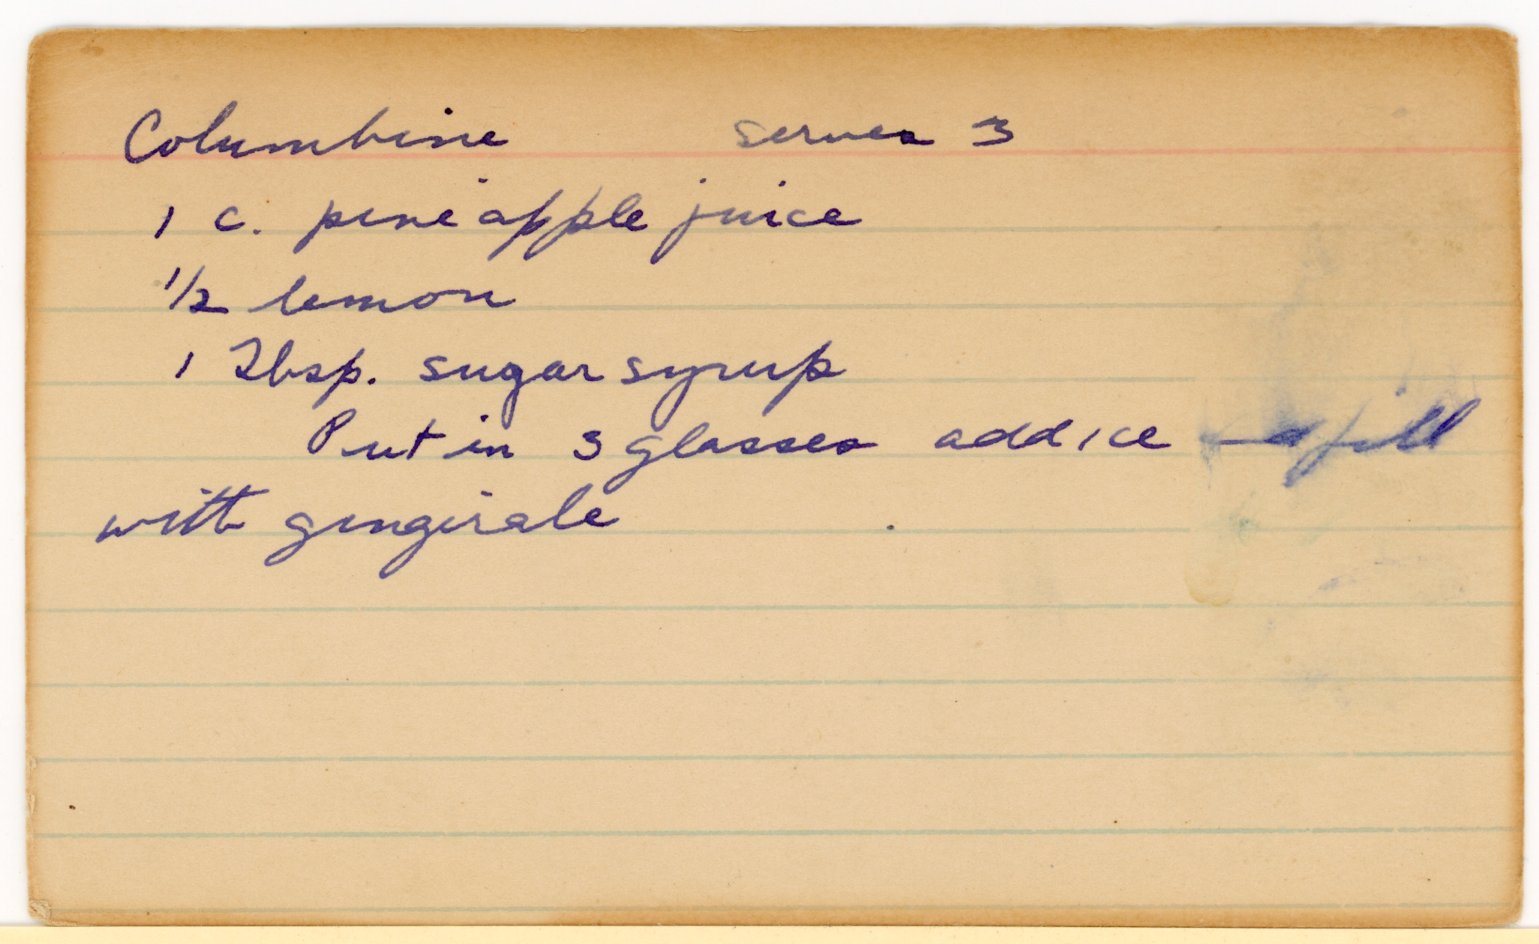 Columbine serves 3
1 c. pineapple juice
1/2 lemon
1 Tbsp. sugar syrup
Put in 3 glasses add ice and fill
with gingirale